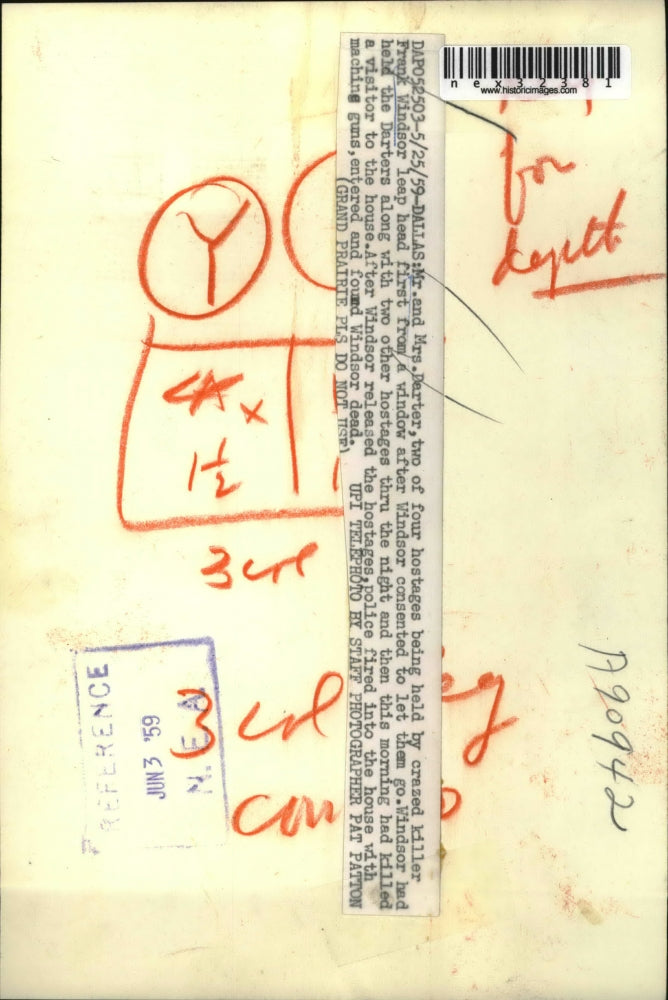 nex32381
www.historicimages.com
for
depth
DAP052503-5/25/59-DALLAS:Mr.and Mrs.Darter,two of four hostages being held by crazed killer
Frank Windsor leap head first from a window after Windsor consented to let them go.Windsor had
held the Darters along with two other hostages thru the night and then this morning had killed
a visitor to the house.After Windsor released the hostages,police fired into the house with
maching guns,entered and found Windsor dead. UPI TELEPHOTO BY STAFF PHOTOGRAPHER PAT PATTON
(GRAND PRAIRIE PLS DO NOT USE)
Y
x
1½
3 col
3 col
REFERENCE
JUN 3 '59
N.E.A.
A90942